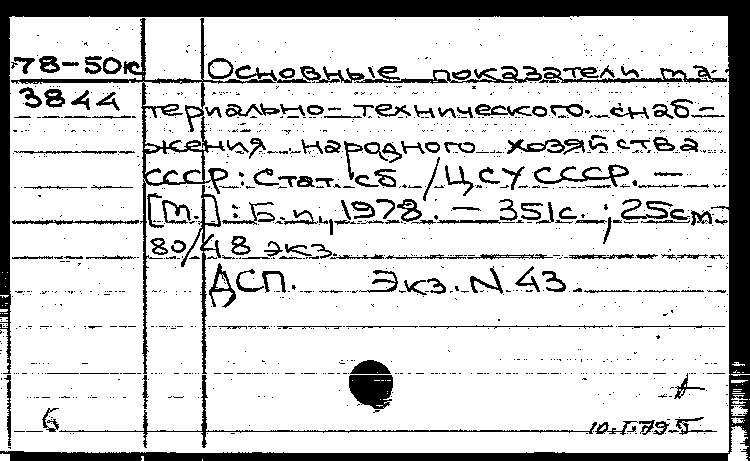 78-50к Основные показатели ма-
3844 териально-технического снаб-
жения народного хозяйства
СССР: Стат. сб. / ЦСУ СССР. —
[М.]: Б. и., 1978. — 351 с.; 25 см —
80/48 экз
ДСП. Экз. N 43.
6